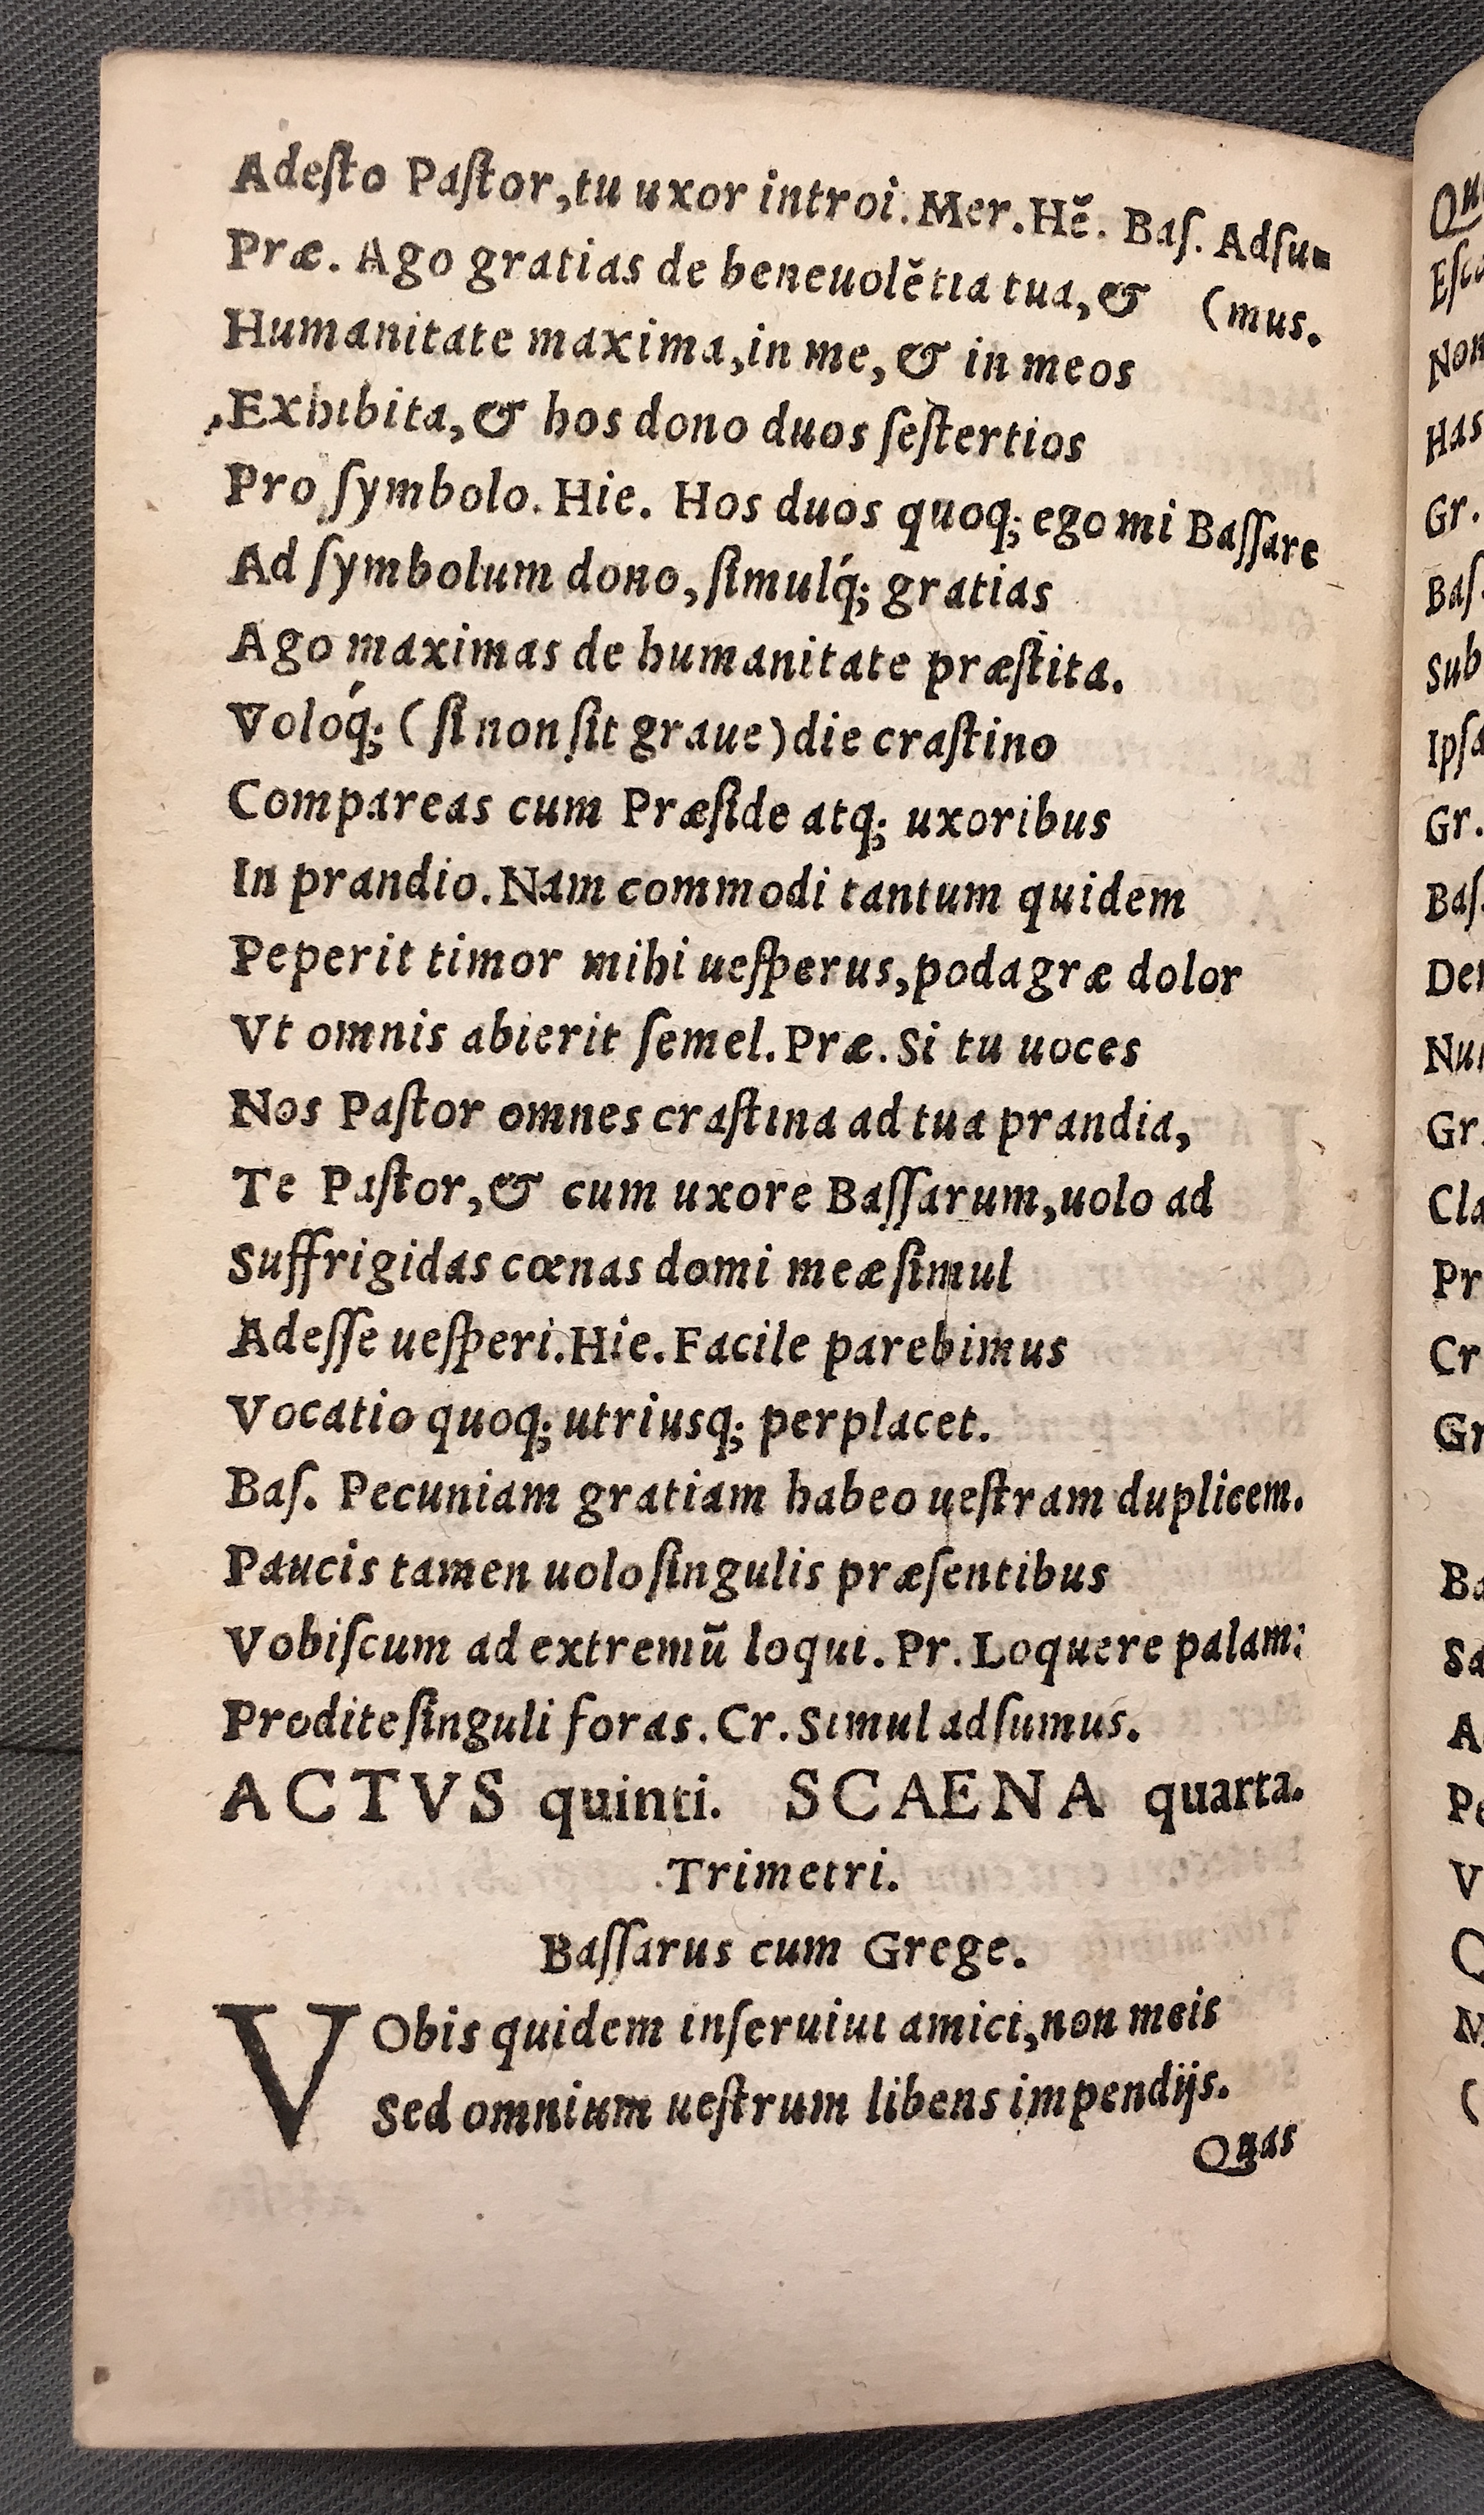 Adeſto Paſtor,tu uxor introi.Mer.Hẽ. Baſ. Adſu-
Præ. Ago gratias de beneuolẽtia tua,& (mus.
Humanitate maxima,in me,& in meos
Exhibita,& hos dono duos ſeſtertios
Pro ſymbolo. Hie. Hos duos quoq; ego mi Baſſare
Ad ſymbolum dono,ſimulq́; gratias
Ago maximas de humanitate præſtita.
Voloq́; (ſi non ſit graue) die craſtino
Compareas cum Præſide atq; uxoribus
In prandio. Nam commodi tantum quidem
Peperit timor mihi ueſperus,podagræ dolor
Vt omnis abierit ſemel. Præ. Si tu uoces
Nos Paſtor omnes craſtina ad tua prandia,
Te Paſtor,& cum uxore Baſſarum,uolo ad
Suffrigidas cœnas domi meæ ſimul
Adeſſe ueſperi.Hie.Facile parebimus
Vocatio quoq; utriusq; perplacet.
Baſ. Pecuniam gratiam habeo ueſtram duplicem.
Paucis tamen uolo ſingulis præſentibus
Vobiſcum ad extremũ loqui. Pr. Loquere palam:
Prodite ſinguli foras. Cr. Simul adſumus.
ACTVS quinti. SCAENA quarta.
Trimetri.
Baſſarus cum Grege.
VObis quidem inſeruiui amici,non meis
Sed omnium ueſtrum libens impendijs.
Quas
Qu
Eſca
Non
Has
Gr.
Baſ.
Sub
Ipſa
Gr.
Baſ.
Den
Nun
Gr.
Cla
Pr
Cr
Gr
Ba
Sa
A
Pe
V
Q
N
(